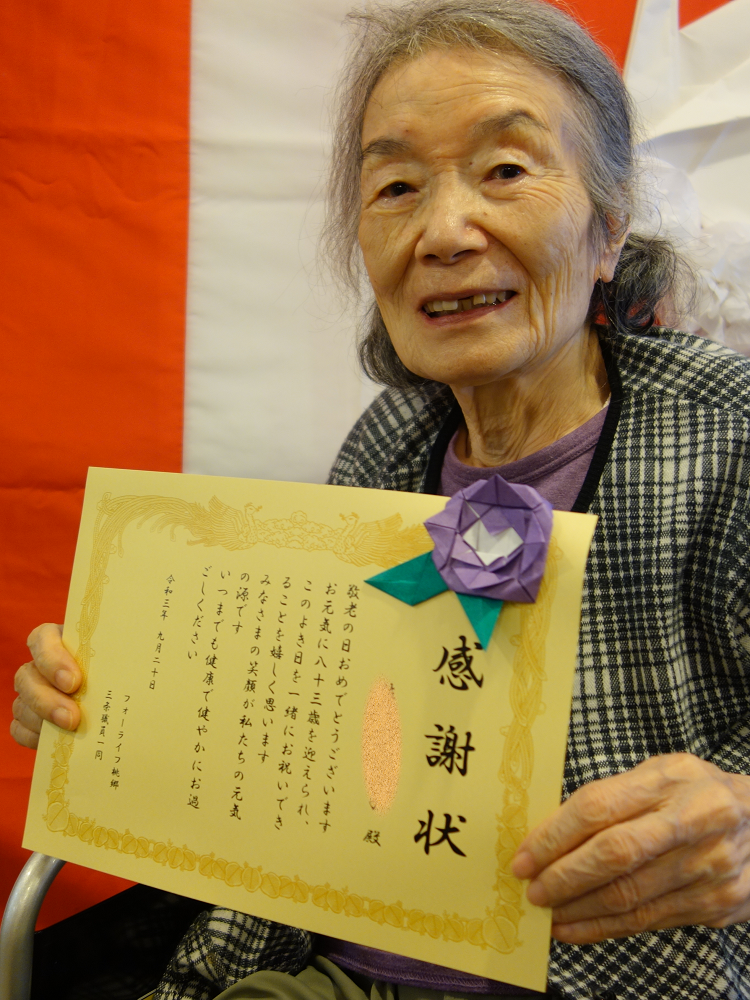 感謝状
殿
敬老の日おめでとうございます
お元気に八十三歳を迎えられ、
このよき日を一緒にお祝いでき
ることを嬉しく思います
みなさまの笑顔が私たちの元気
の源です
いつまでも健康で健やかにお過
ごしください
令和三年 九月二十日
フォーライフ桃郷
三条職員一同